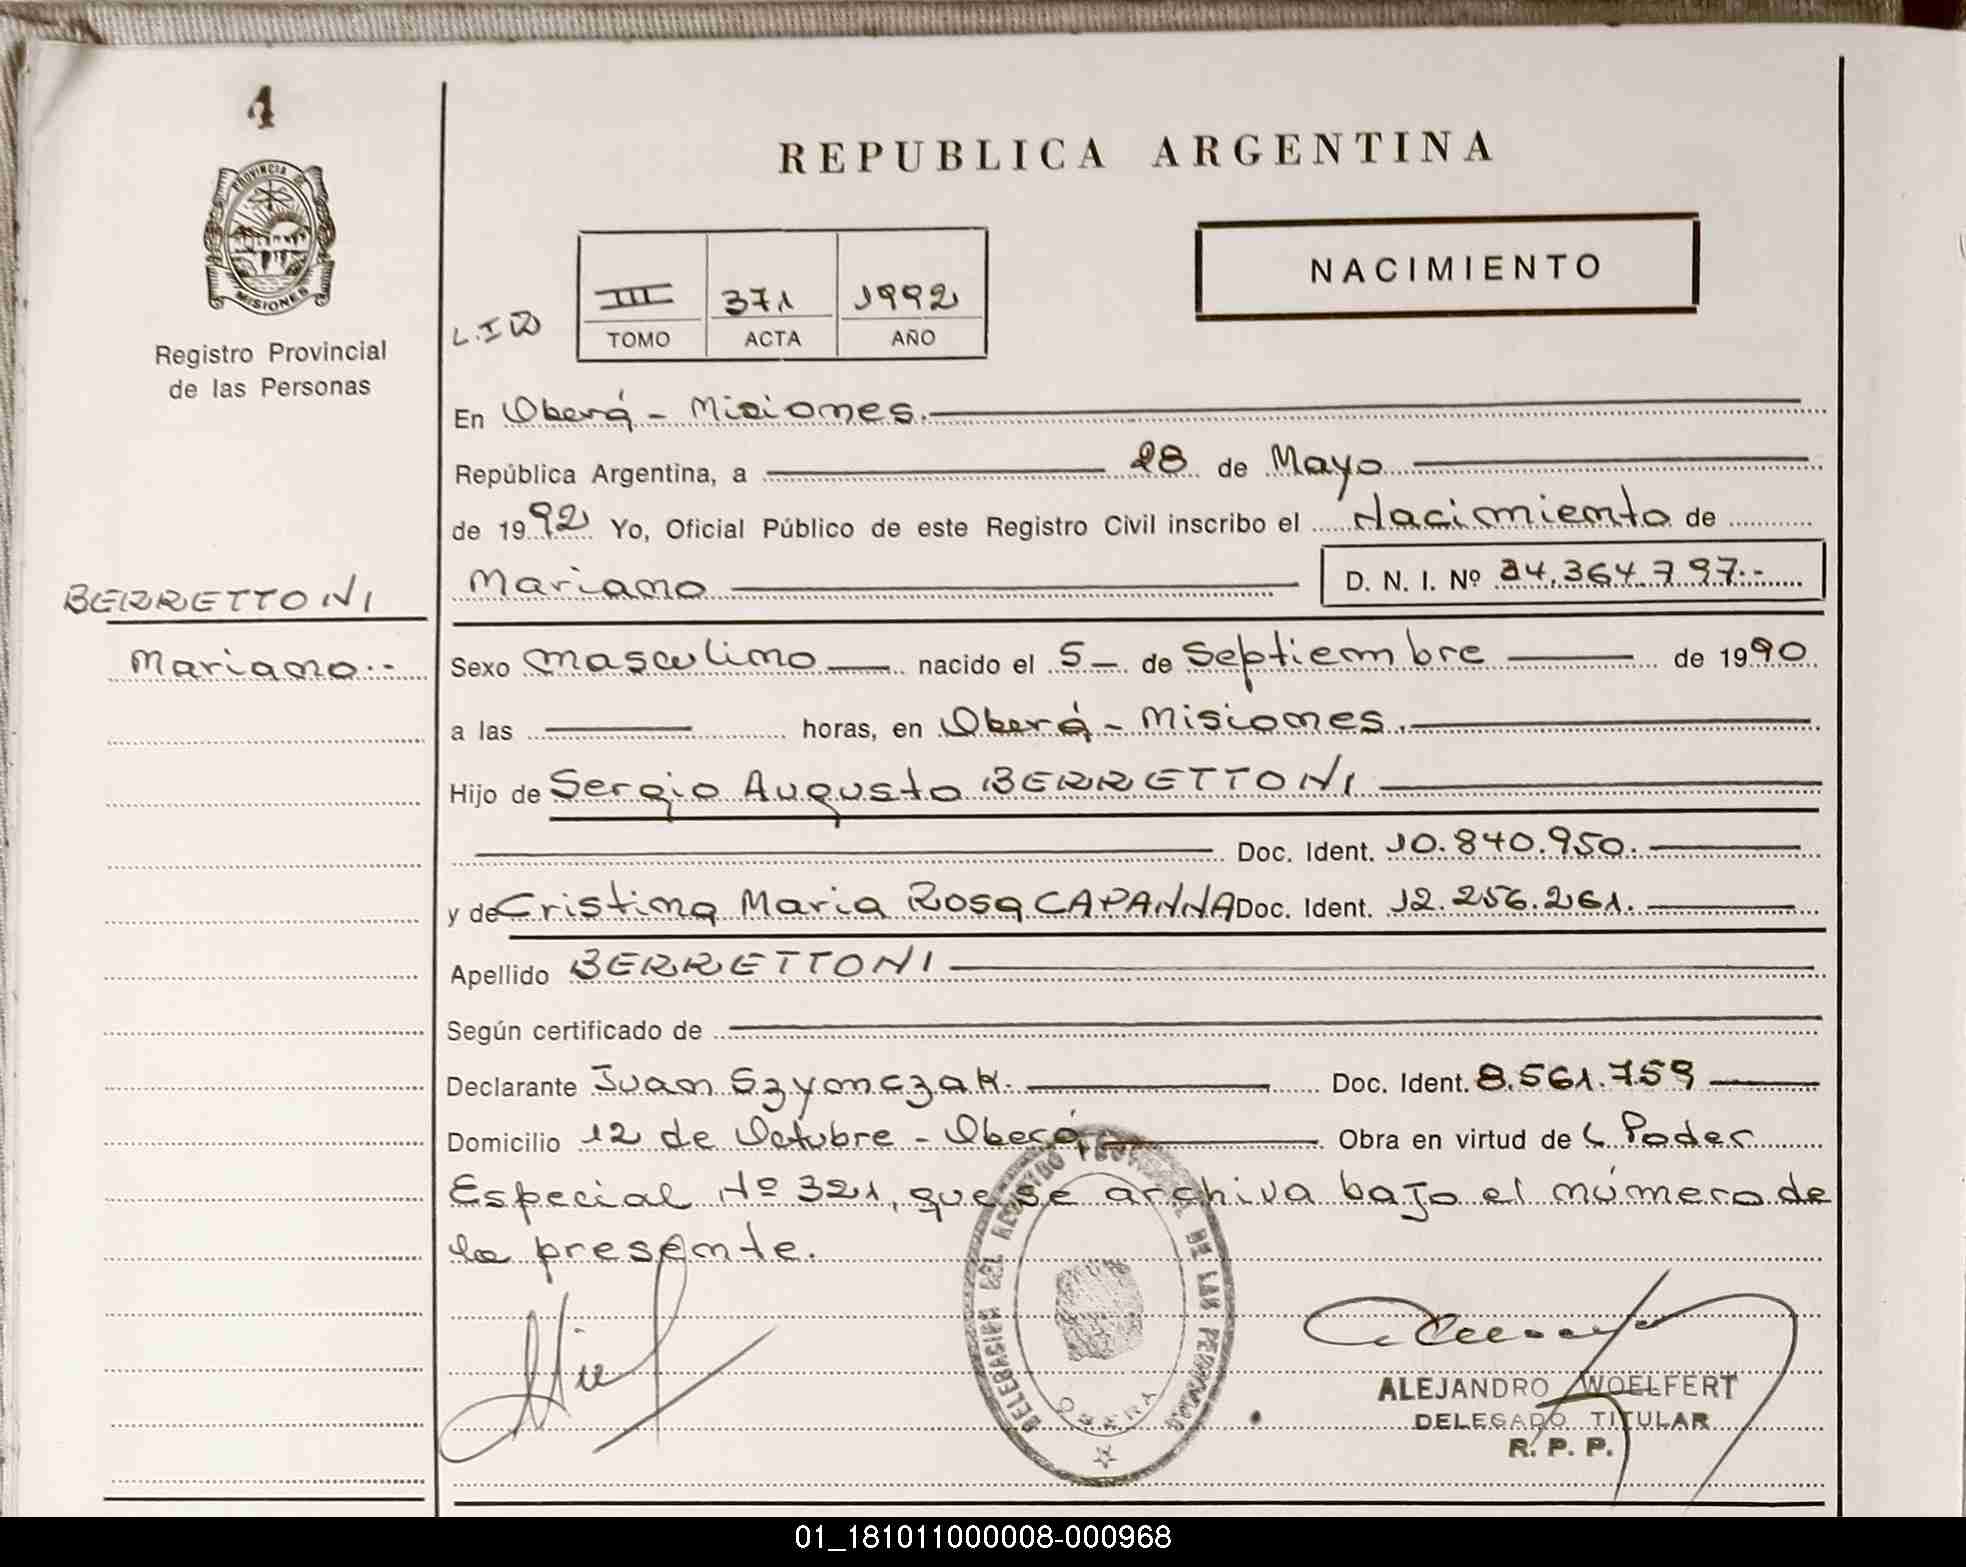 1
PROVINCIA DE
MISIONES
Registro Provincial
de las Personas
REPUBLICA ARGENTINA
NACIMIENTO
III 371 1992
TOMO ACTA AÑO
En Oberá - Misiones.
República Argentina, a 28 de Mayo
de 1992 Yo, Oficial Público de este Registro Civil inscribo el Nacimiento de
Mariano D. N. I. Nº 34.364.797.-
BERRETTONI
Mariano.-
Sexo masculino nacido el 5 de Septiembre de 1990
a las horas, en Oberá - Misiones.
Hijo de Sergio Augusto BERRETTONI
Doc. Ident. 10.840.950.
y de Cristina Maria Rosa CAPANNA Doc. Ident. 12.256.261.
Apellido BERRETTONI
Según certificado de
Declarante Juan Szymczak. Doc. Ident. 8.561.759
Domicilio 12 de Octubre - Oberá Obra en virtud de Poder
Especial Nº 321, que se archiva bajo el número de
la presente.
DELEGACION DEL REGISTRO PROVINCIAL DE LAS PERSONAS
OBERA
ALEJANDRO WOELFERT
DELEGADO TITULAR
R. P. P.
01_181011000008-000968